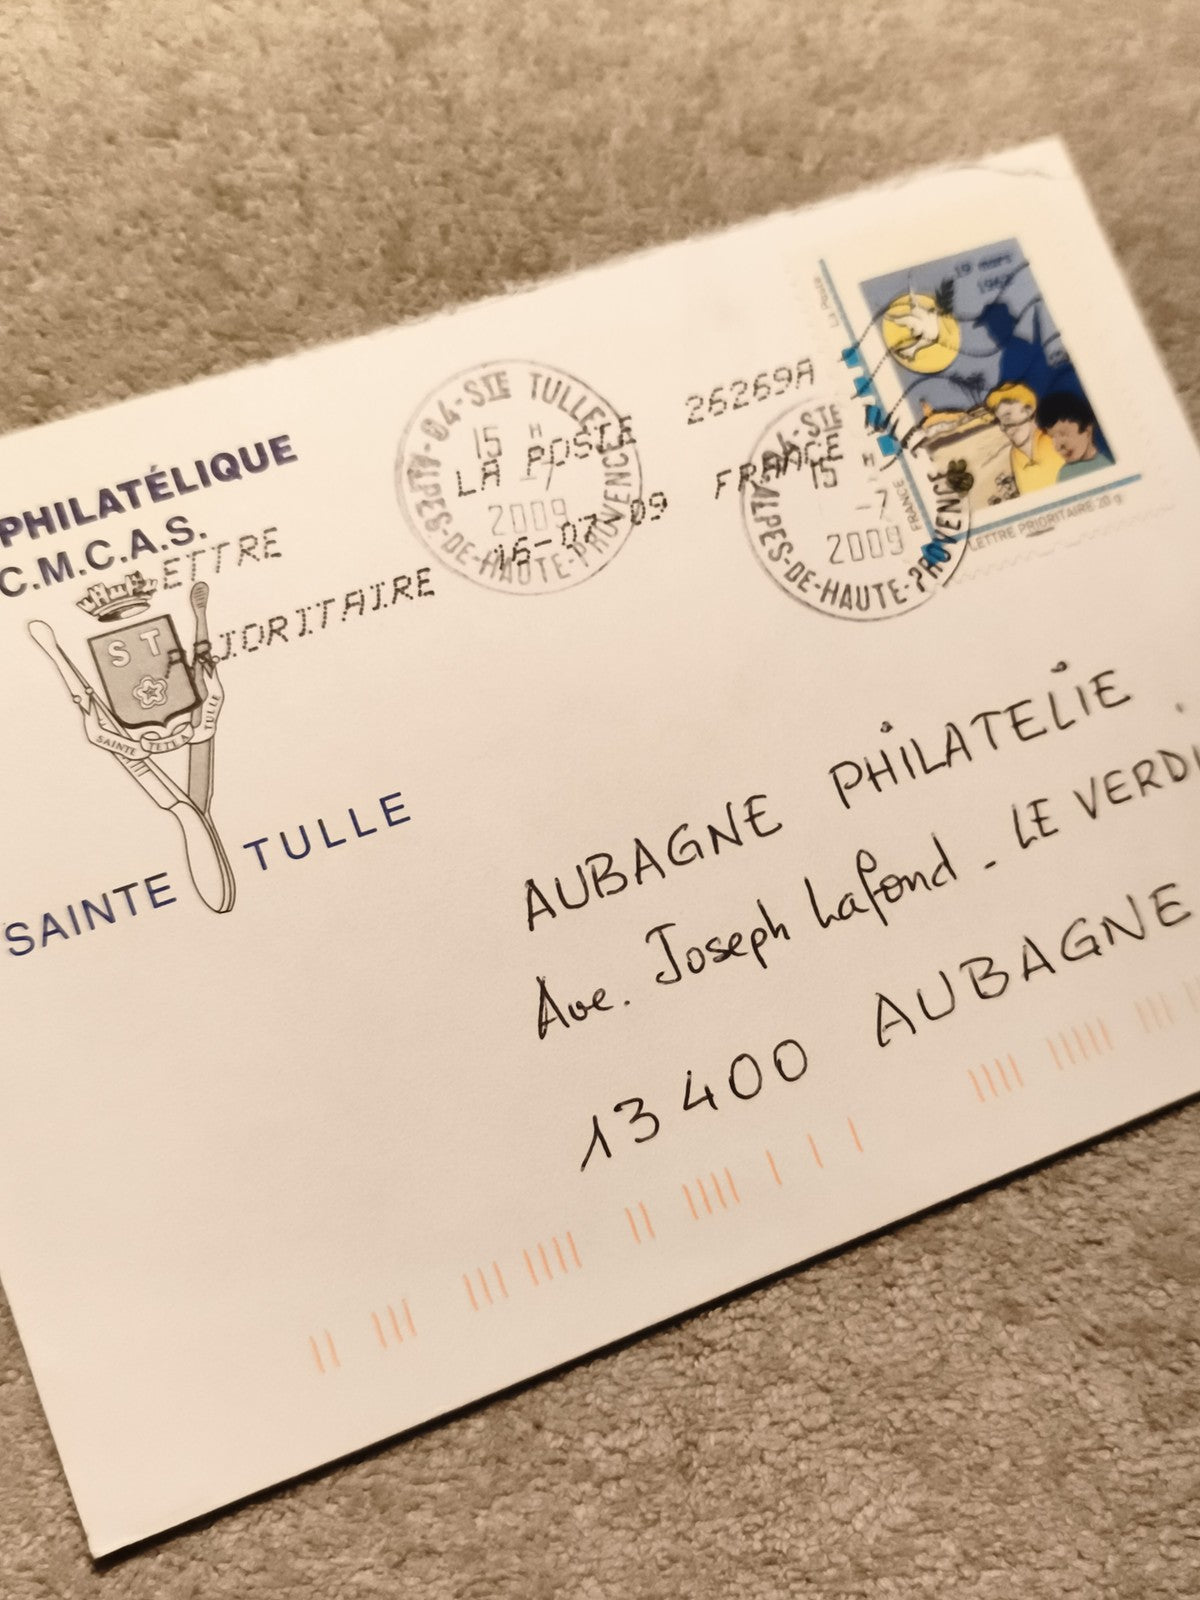 PHILATÉLIQUE
C.M.C.A.S.
LETTRE
PRIORITAIRE
S T
SAINTE TETLA TULLE
SAINTE TULLE
04-STE TULLE
ALPES-DE-HAUTE-PROVENCE
15 H
-7
2009
LA POSTE
16-07-09
26269A
FRANCE
04-STE
ALPES-DE-HAUTE-PROVENCE
15 H
-7
2009
La Poste
19 mars
1962
FRANCE
LETTRE PRIORITAIRE 20 g
AUBAGNE PHILATELIE
Ave. Joseph Lafond - LE VERDI
13400 AUBAGNE